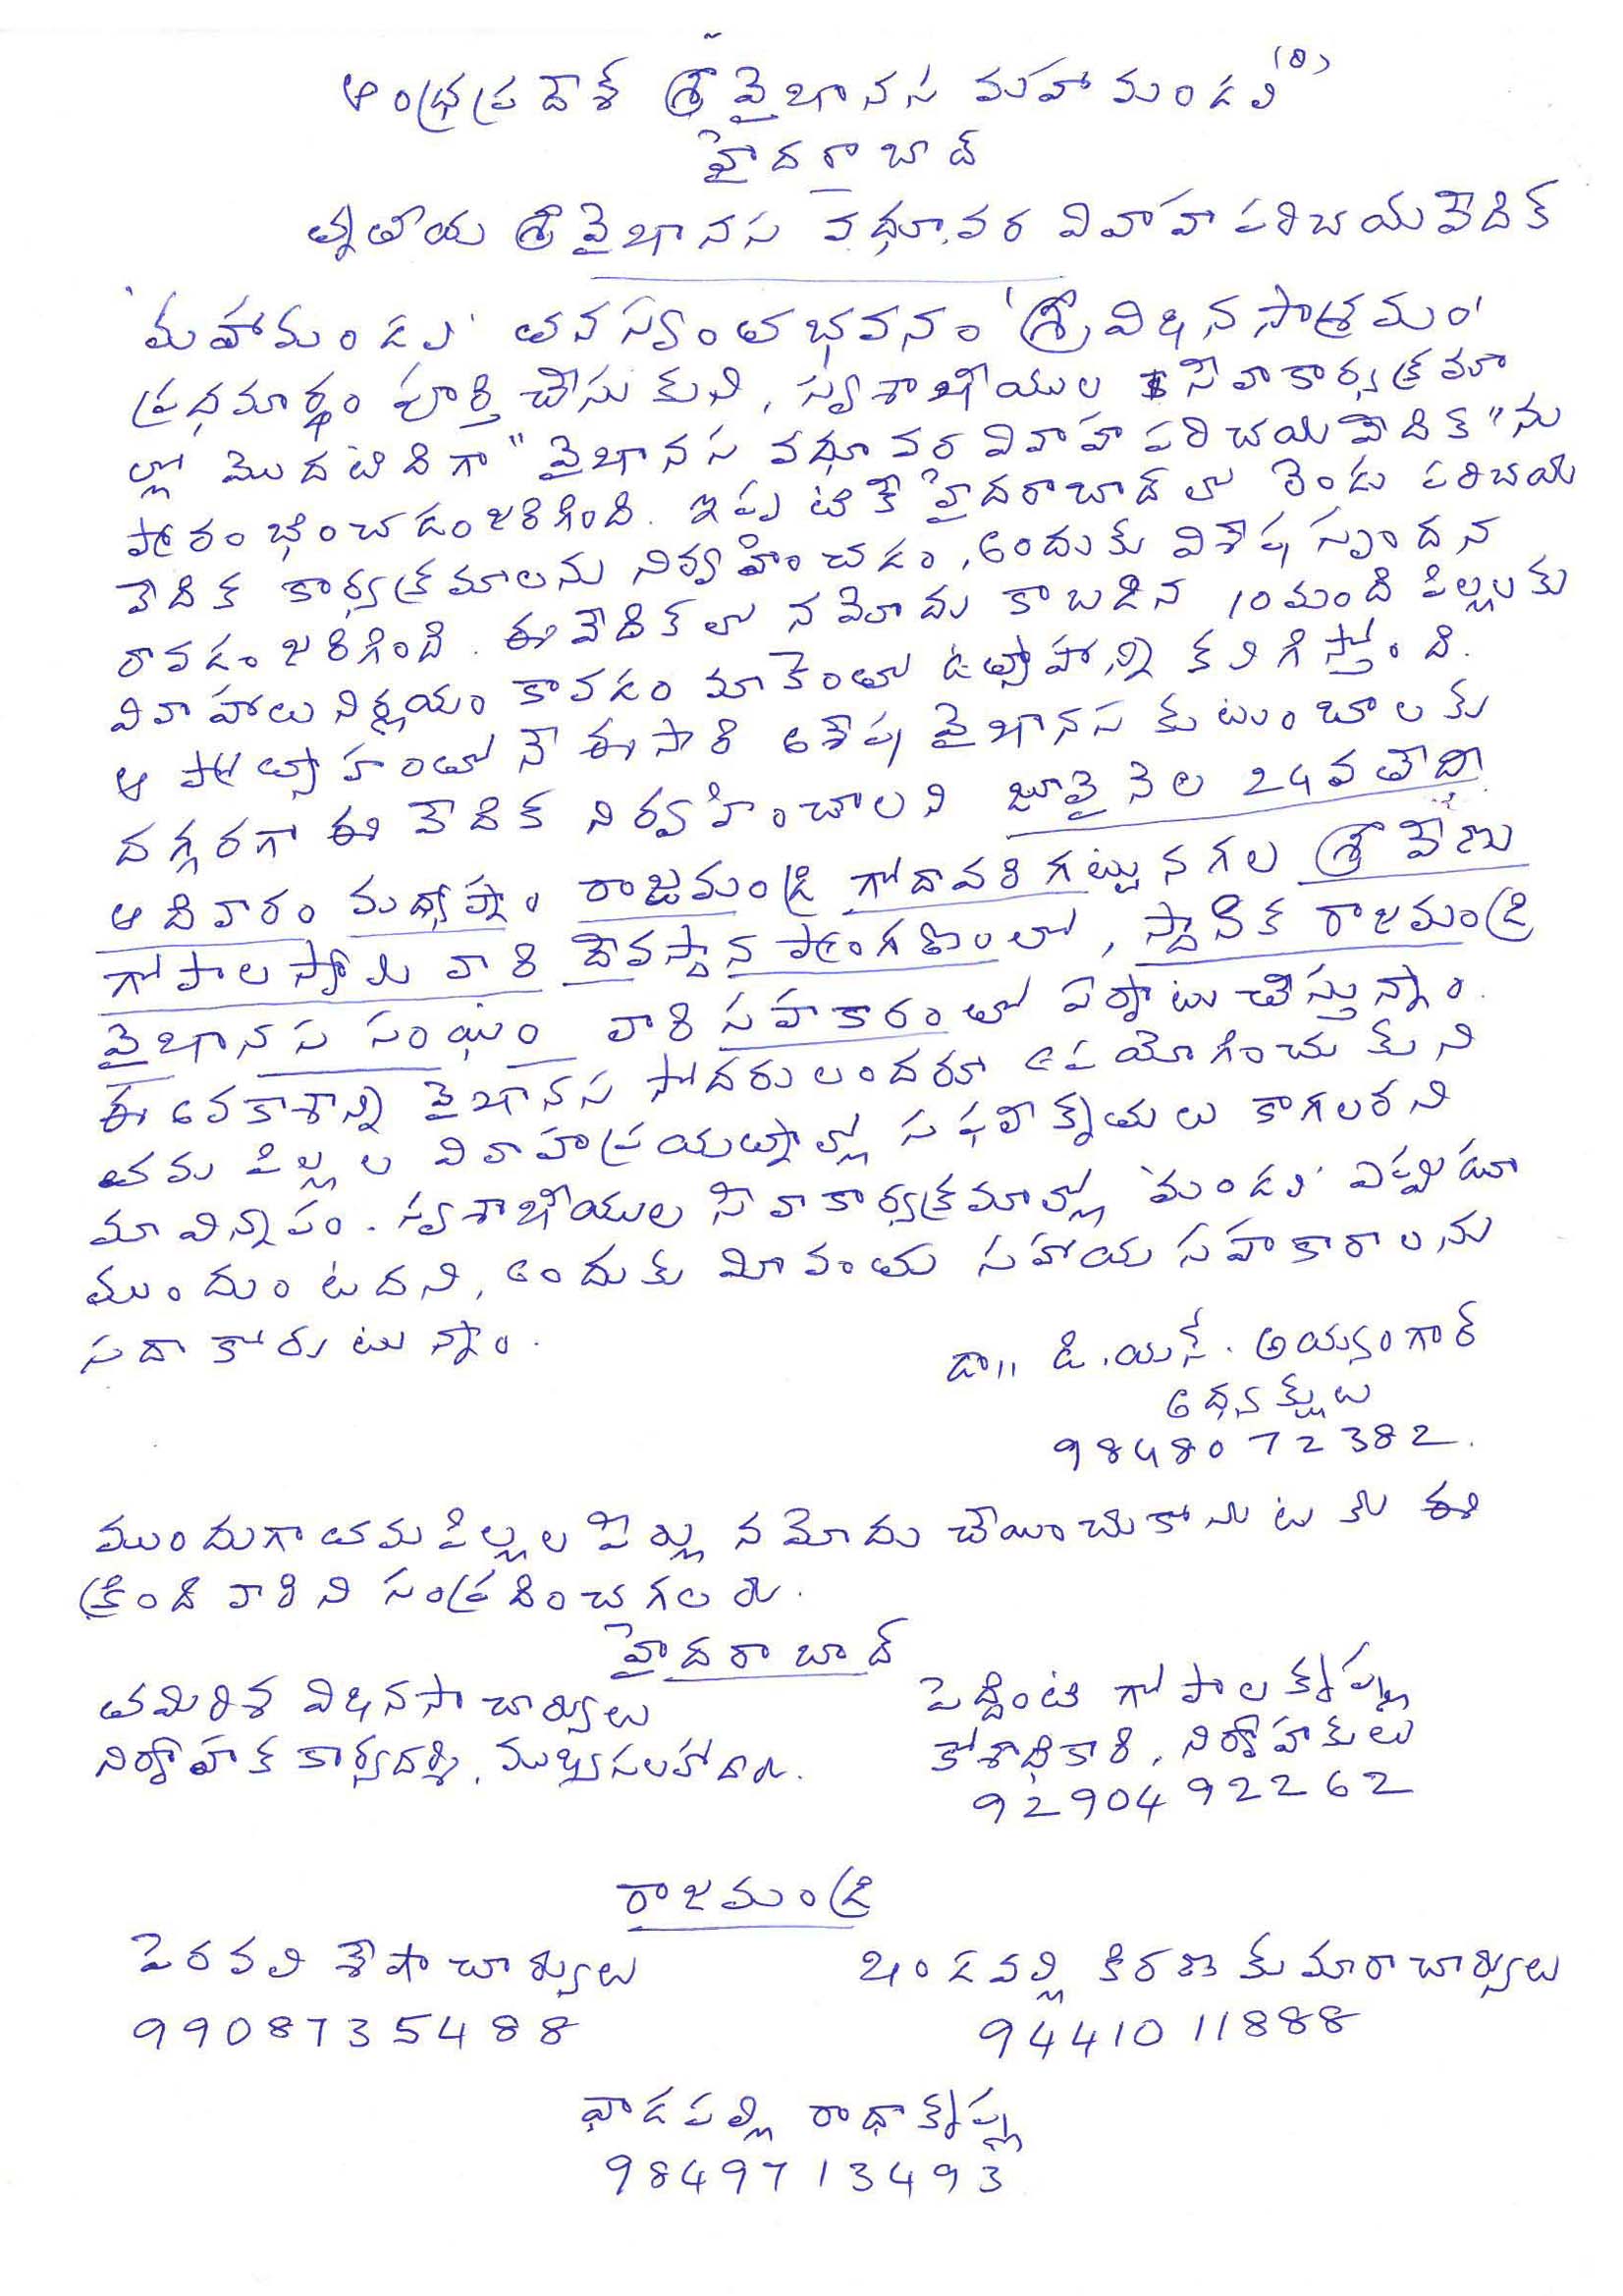 ఆంధ్రప్రదేశ్ శ్రీ వైఖానస మహామండలి (రి)
హైదరాబాద్
తృతీయ శ్రీ వైఖానస వధూ.వర వివాహ పరిచయ వేదిక
'మహామండలి' తన స్వంత భవనం 'శ్రీ విఖనసాశ్రమం'
ప్రధమార్ధం పూర్తి చేసుకుని, స్వశాఖీయుల సేవా కార్యక్రమా
ల్లో మొదటిదిగా "వైఖానస వధూవర వివాహ పరిచయ వేదిక" ను
ప్రారంభించడం జరిగింది. ఇప్పటికే హైదరాబాద్ లో రెండు పరిచయ
వేదిక కార్యక్రమాలను నిర్వహించడం, అందుకు విశేష స్పందన
రావడం జరిగింది. ఈ వేదిక లో నమోదు కాబడిన 10 మంది పిల్లలకు
వివాహాలు నిర్ణయం కావడం మాకెంతో ఉత్సాహాన్ని కలిగిస్తోంది.
ఆ ప్రోత్సాహంతోనే ఈసారి అశేష వైఖానస కుటుంబాలకు
దగ్గరగా ఈ వేదిక నిర్వహించాలని జూలై నెల 24వ తేదీ
ఆదివారం మధ్యాహ్నం రాజమండ్రి గోదావరి గట్టునగల శ్రీ వేణు
గోపాల స్వామి వారి దేవస్థాన ప్రాంగణంలో, స్థానిక రాజమండ్రి
వైఖానస సంఘం వారి సహకారంతో ఏర్పాటు చేస్తున్నాం.
ఈ అవకాశాన్ని వైఖానస సోదరులందరూ ఉపయోగించుకుని
తమ పిల్లల వివాహప్రయత్నాల్లో సఫలీకృతులు కాగలరని
మా విన్నపం. స్వశాఖీయుల సేవా కార్యక్రమాల్లో 'మండలి' ఎప్పుడూ
ముందుంటదని, అందుకు మీవంతు సహాయ సహకారాలను
సదా కోరుటున్నాం.
డా॥ డి.యన్. అయ్యంగార్
అధ్యక్షుడు
9848072382.
ముందుగా తమ పిల్లల పేర్లు నమోదు చేయించుకొనుటకు ఈ
క్రింది వారిని సంప్రదించగలరు.
హైదరాబాద్
తమిరిశ విఖనసాచార్యులు
నిర్వాహక కార్యదర్శి, ముఖ్యసలహాదారు.
పెద్దింటి గోపాలకృష్ణ
కోశాధికారి, నిర్వాహకులు
9290492262
రాజమండ్రి
పెరవలి శేషాచార్యులు
9908735488
ఖండవల్లి కిరణ్ కుమారాచార్యులు
9441011888
వాడపల్లి రాధాకృష్ణ
9849713493